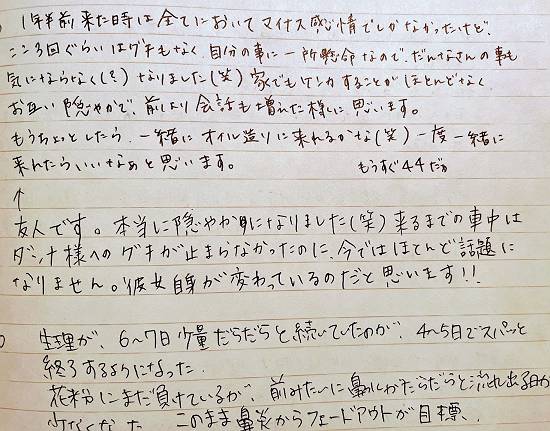 1年半前来た時は全てにおいてマイナス感情でしかなかったけど、
ここ3回ぐらいはグチもなく、自分の事に一所懸命なので、だんなさんの事も
気にならなく(?)なりました(笑)家でもケンカすることがほとんどなく
お互い隠やかで、前より会話も増えた様に思います。
もうちょっとしたら、一緒にオイル造りに来れるかな(笑)一度一緒に
来れたらいいなぁと思います。
もうすぐ44だか
↑
友人です。本当に隠やかになりました(笑)来るまでの車中は
ダンナ様へのグチが止まらなかったのに、今ではほとんど話題に
なりません。彼女自身が変わっているのだと思います!!
生理が、6〜7日少量だらだらと続いていたのが、4〜5日でスパッと
終了するようになった。
花粉にまだ負けているが、前みたいに鼻水がだらだらと流れ出る日が
少なくなった このまま鼻炎からフェードアウトが目標、